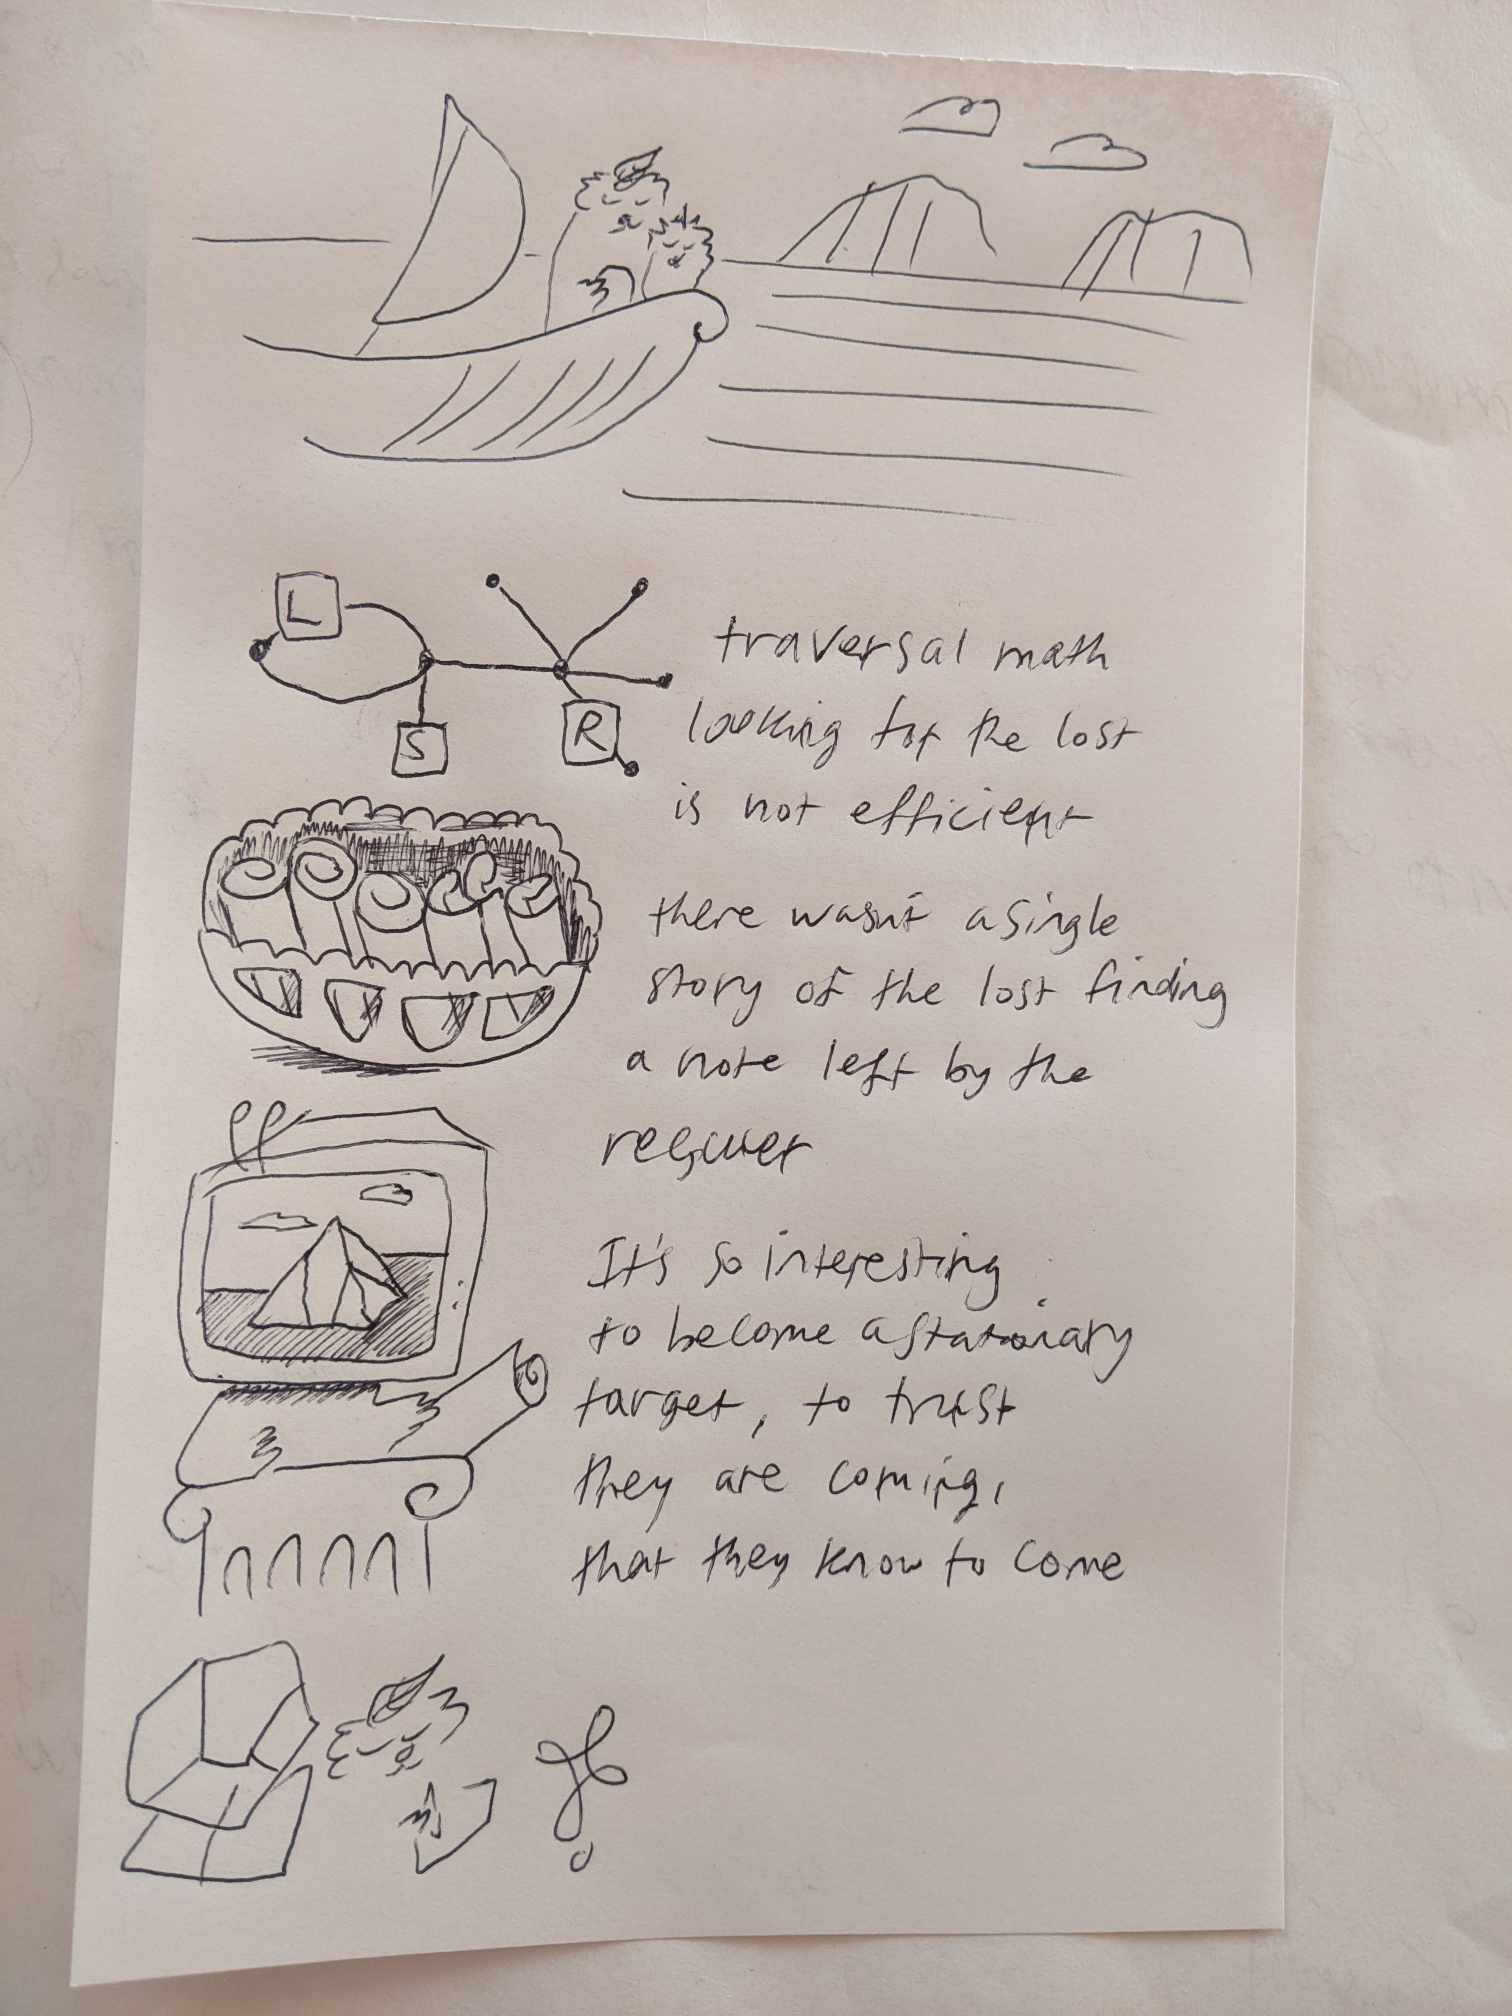 L
S
R
traversal math
looking for the lost
is not efficient
there wasn't a single
story of the lost finding
a note left by the
rescuer
It's so interesting
to become a stationary
target, to trust
they are coming,
that they know to come